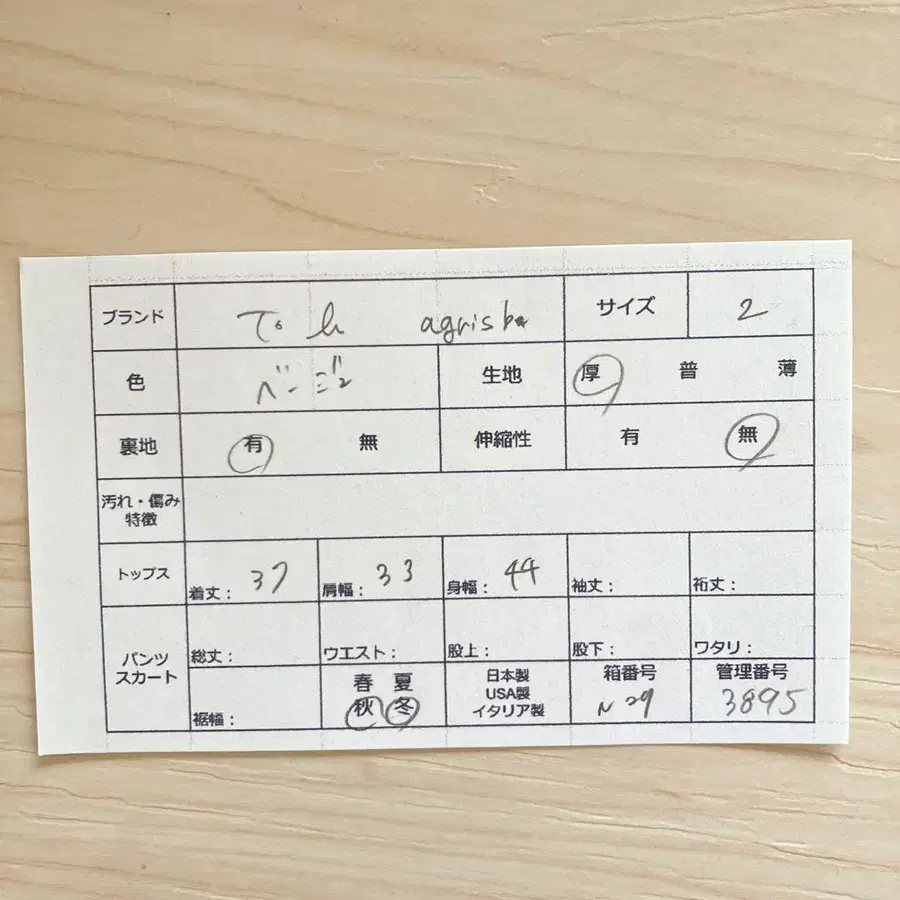 ブランド To b agnis b. サイズ 2
色 ベージュ 生地 厚 普 薄
裏地 有 無 伸縮性 有 無
汚れ・傷み
特徴
トップス 着丈： 37 肩幅： 33 身幅： 44 袖丈： 裄丈：
パンツ
スカート
総丈： ウエスト： 股上： 股下： ワタリ：
裾幅：
春 夏
秋 冬
日本製
USA製
イタリア製
箱番号
N 29
管理番号
3895